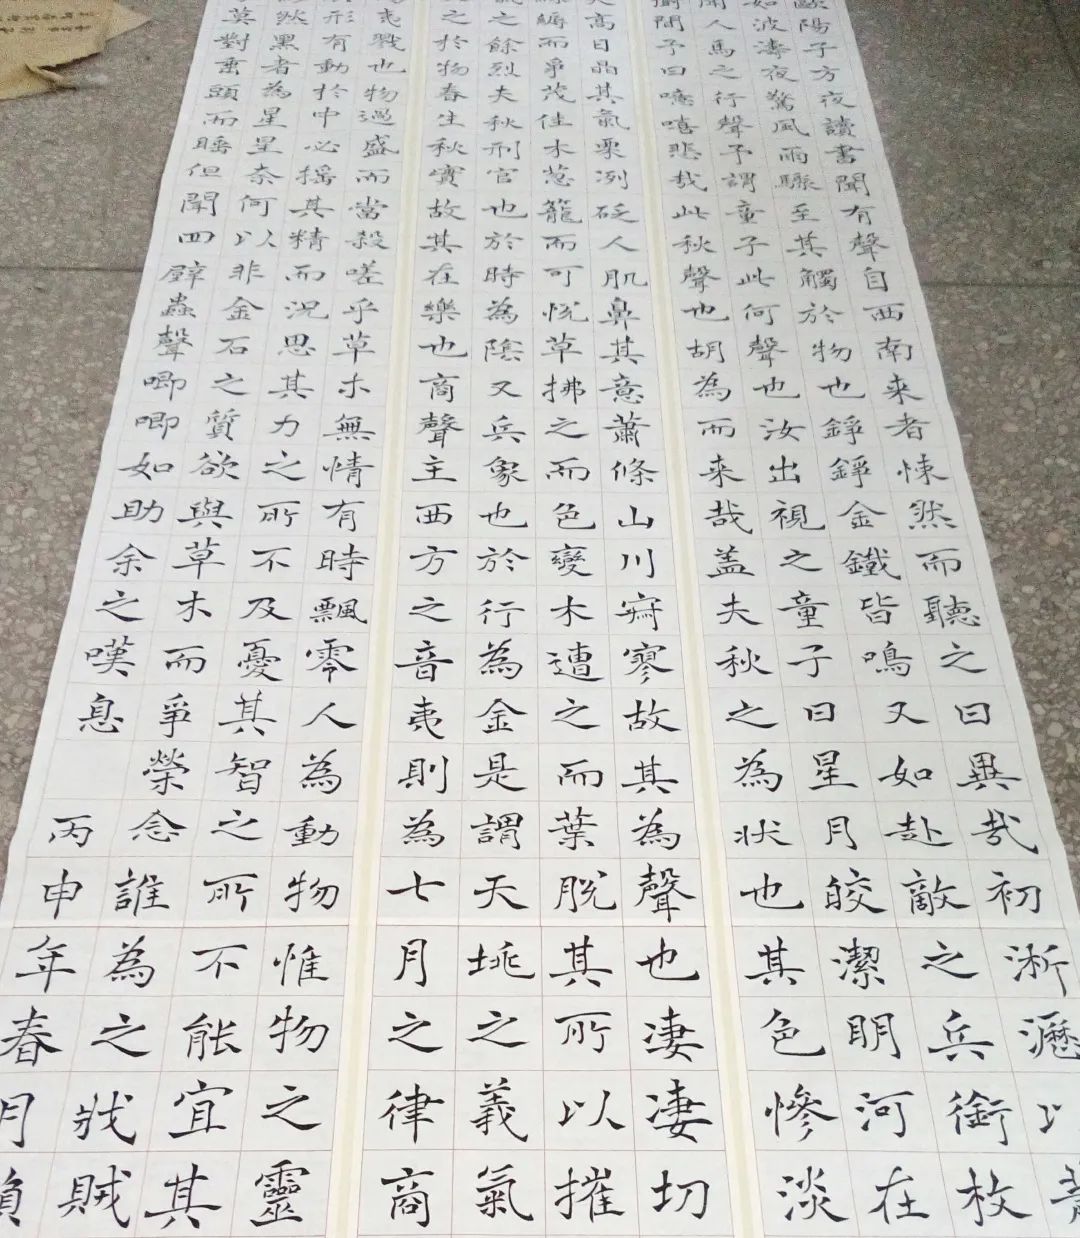 歐陽子方夜讀書聞有聲自西南来者悚然而聽之曰異哉初淅瀝以蕭
如波濤夜驚風雨驟至其觸於物也錚錚金鐵皆鳴又如赴敵之兵銜枚
聞人馬之行聲予謂童子此何聲也汝出視之童子曰星月皎潔明河在
樹間予曰噫嘻悲哉此秋聲也胡為而来哉盖夫秋之為狀也其色慘淡
天高日晶其氣栗冽砭人肌鼻其意蕭條山川寂寥故其為聲也淒淒切
縟而爭茂佳木葱籠而可悦草拂之而色變木遭之而葉脱其所以摧
之餘烈夫秋刑官也於時為陰又兵象也於行為金是謂天地之義氣
之於物春生秋實故其在樂也商聲主西方之音夷則為七月之律商
夷戮也物過盛而當殺嗟乎草木無情有時飄零人為動物惟物之靈
形有動於中必摇其精而況思其力之所不及憂其智之所不能宜其
然黑者為星星奈何以非金石之質欲與草木而爭榮念誰為之戕賊
莫對垂頭而睡但聞四壁蟲聲唧唧如助余之嘆息
丙申年春月